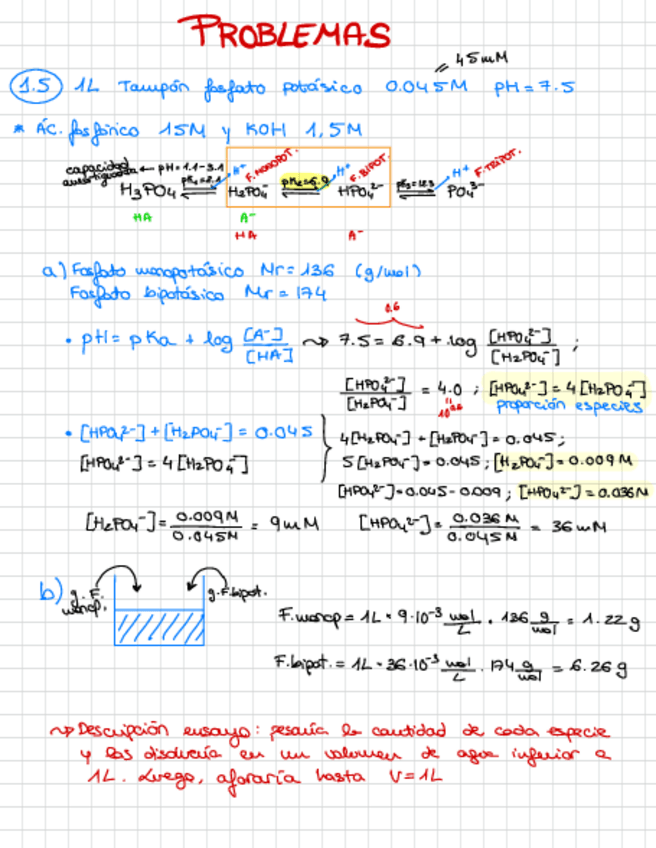 PROBLEMAS
45mM
1.5 1L Tampón fosfato potásico 0.045M pH=7.5
* Ác. fosfórico 15M y KOH 1,5M
capacidad ← pH=1.1-3.1 H⁺ F. MONOPOT. H⁺ F. BIPOT. H⁺ F. TRIPOT.
H3PO4 H2PO4⁻ pKa=6.9 HPO4²⁻ PO4³⁻
HA A⁻
HA A⁻
a) Fosfato monopotásico Mr=136 (g/mol)
Fosfato bipotásico Mr=174
0.6
• pH= pKa + log [A⁻]/[HA] ⇝ 7.5=6.9+log [HPO4²⁻]/[H2PO4⁻] ;
[HPO4²⁻]/[H2PO4⁻] = 4.0 ; [HPO4²⁻]=4[H2PO4⁻]
proporción especies
• [HPO4²⁻]+[H2PO4⁻]=0.045 4[H2PO4⁻]+[H2PO4⁻]=0.045;
[HPO4²⁻]=4[H2PO4⁻] 5[H2PO4⁻]=0.045; [H2PO4⁻]=0.009M
[HPO4²⁻]=0.045-0.009; [HPO4²⁻]=0.036M
[H2PO4⁻]= 0.009M/0.045M = 9mM [HPO4²⁻]= 0.036M/0.045M = 36mM
b) g.F. monop. g.F.bipot.
F.monop= 1L · 9·10⁻³ mol/L · 136 g/mol = 1.22g
F.bipot.= 1L · 36·10⁻³ mol/L · 174 g/mol = 6.26g
⇝ Descripción ensayo: pesaría la cantidad de cada especie
y las disolvería en un volumen de agua inferior a
1L. Luego, aforaría hasta V=1L